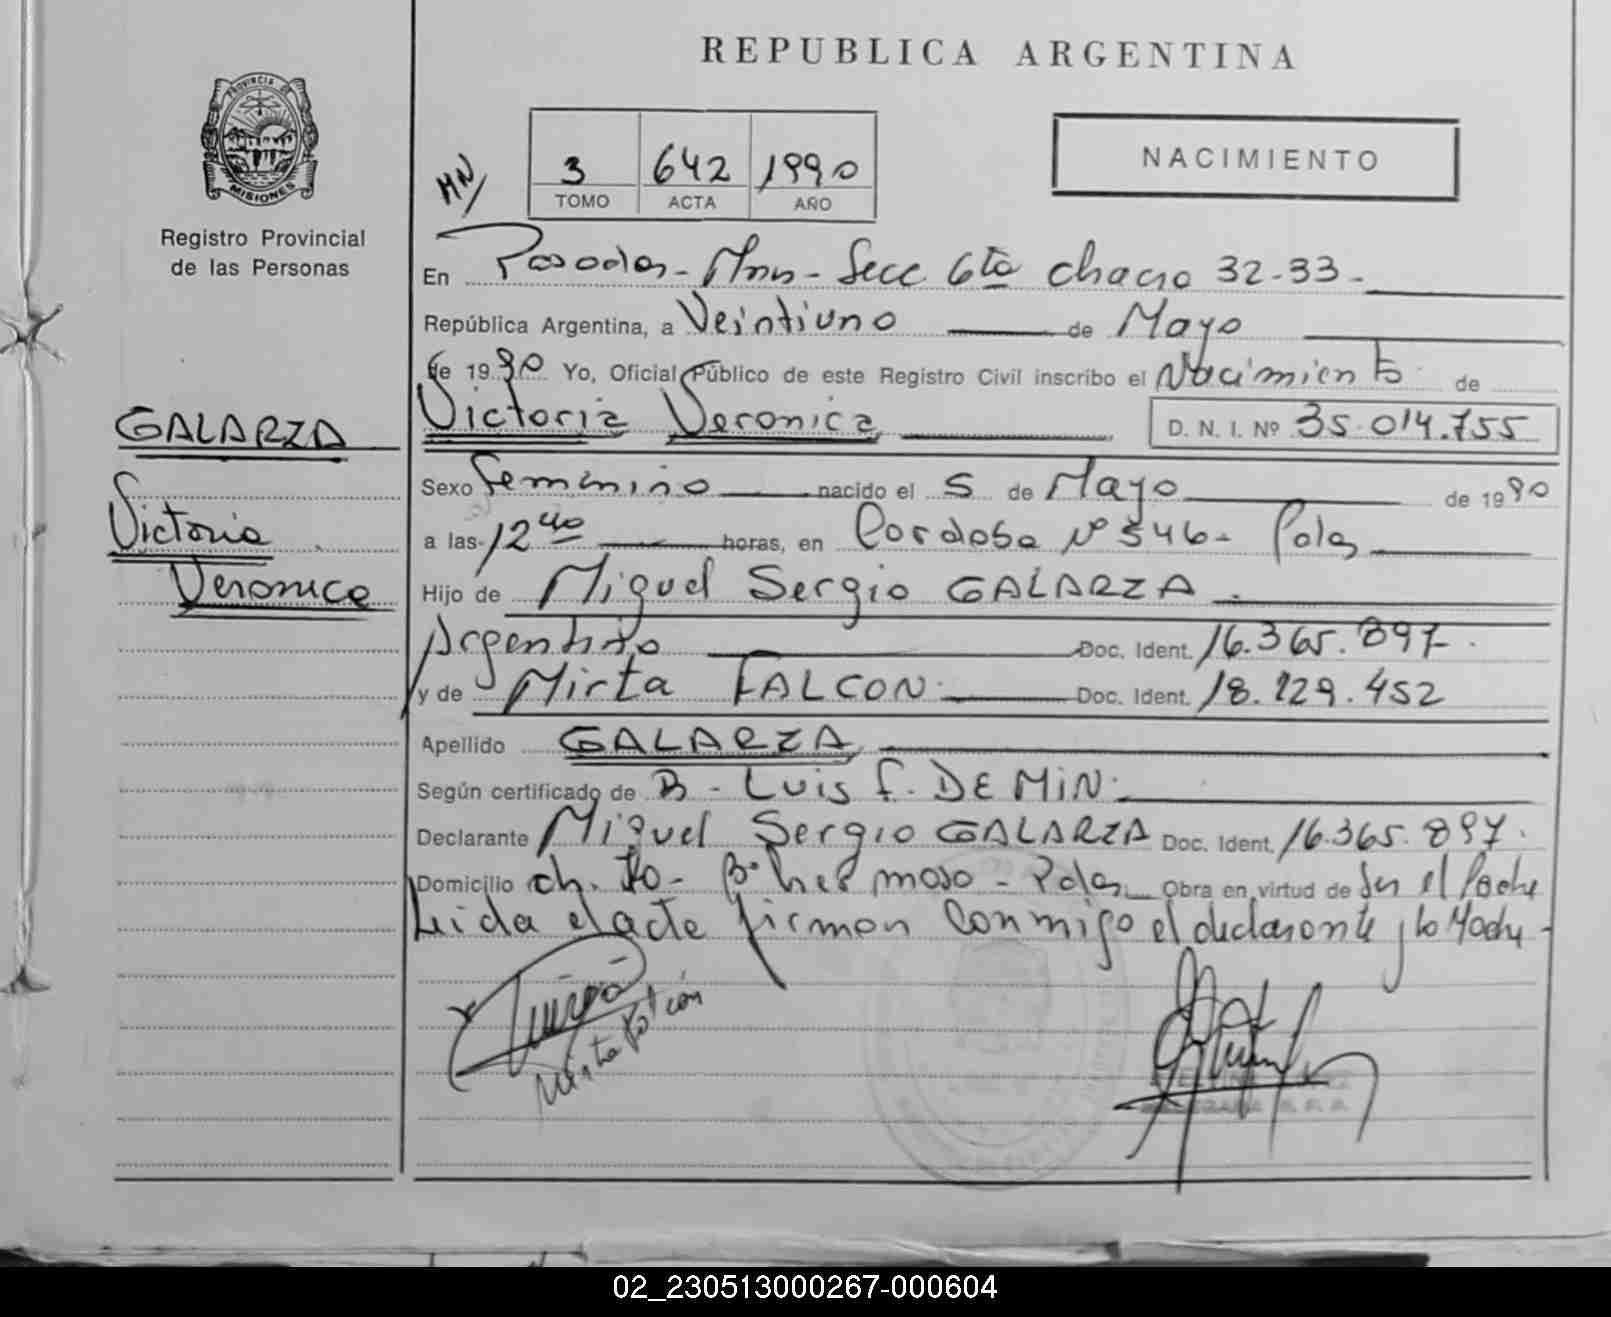 REPUBLICA ARGENTINA
PROVINCIA DE
MISIONES
Registro Provincial
de las Personas
3 642 1990
TOMO ACTA AÑO
NACIMIENTO
En Posadas - Mnes - Secc 6ta chacra 32-33 -
República Argentina, a Veintiuno de Mayo
de 1990 Yo, Oficial Público de este Registro Civil inscribo el Nacimiento de
Victoria Veronica D. N. I. Nº 35.014.755
GALARZA
Victoria
Veronica
Sexo femenino nacido el 5 de Mayo de 1990
a las 12 40 horas, en Cordoba Nº 546 - Pdas
Hijo de Miguel Sergio GALARZA
Argentino Doc. Ident. 16.365.897
y de Mirta FALCON Doc. Ident. 18.129.452
Apellido GALARZA
Según certificado de B - Luis F. DE MIN
Declarante Miguel Sergio GALARZA Doc. Ident. 16.365.897
Domicilio ch. - Bº hermoso - Pdas Obra en virtud de Ser el Padre
Leida el acta firman conmigo el declarante y la Madre -
Mirta Falcón
02_230513000267-000604